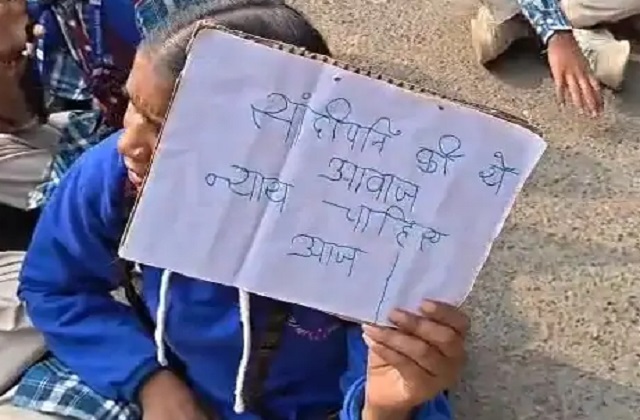 सांदीपनि की ये
आवाज
न्याय चाहिए
आज।